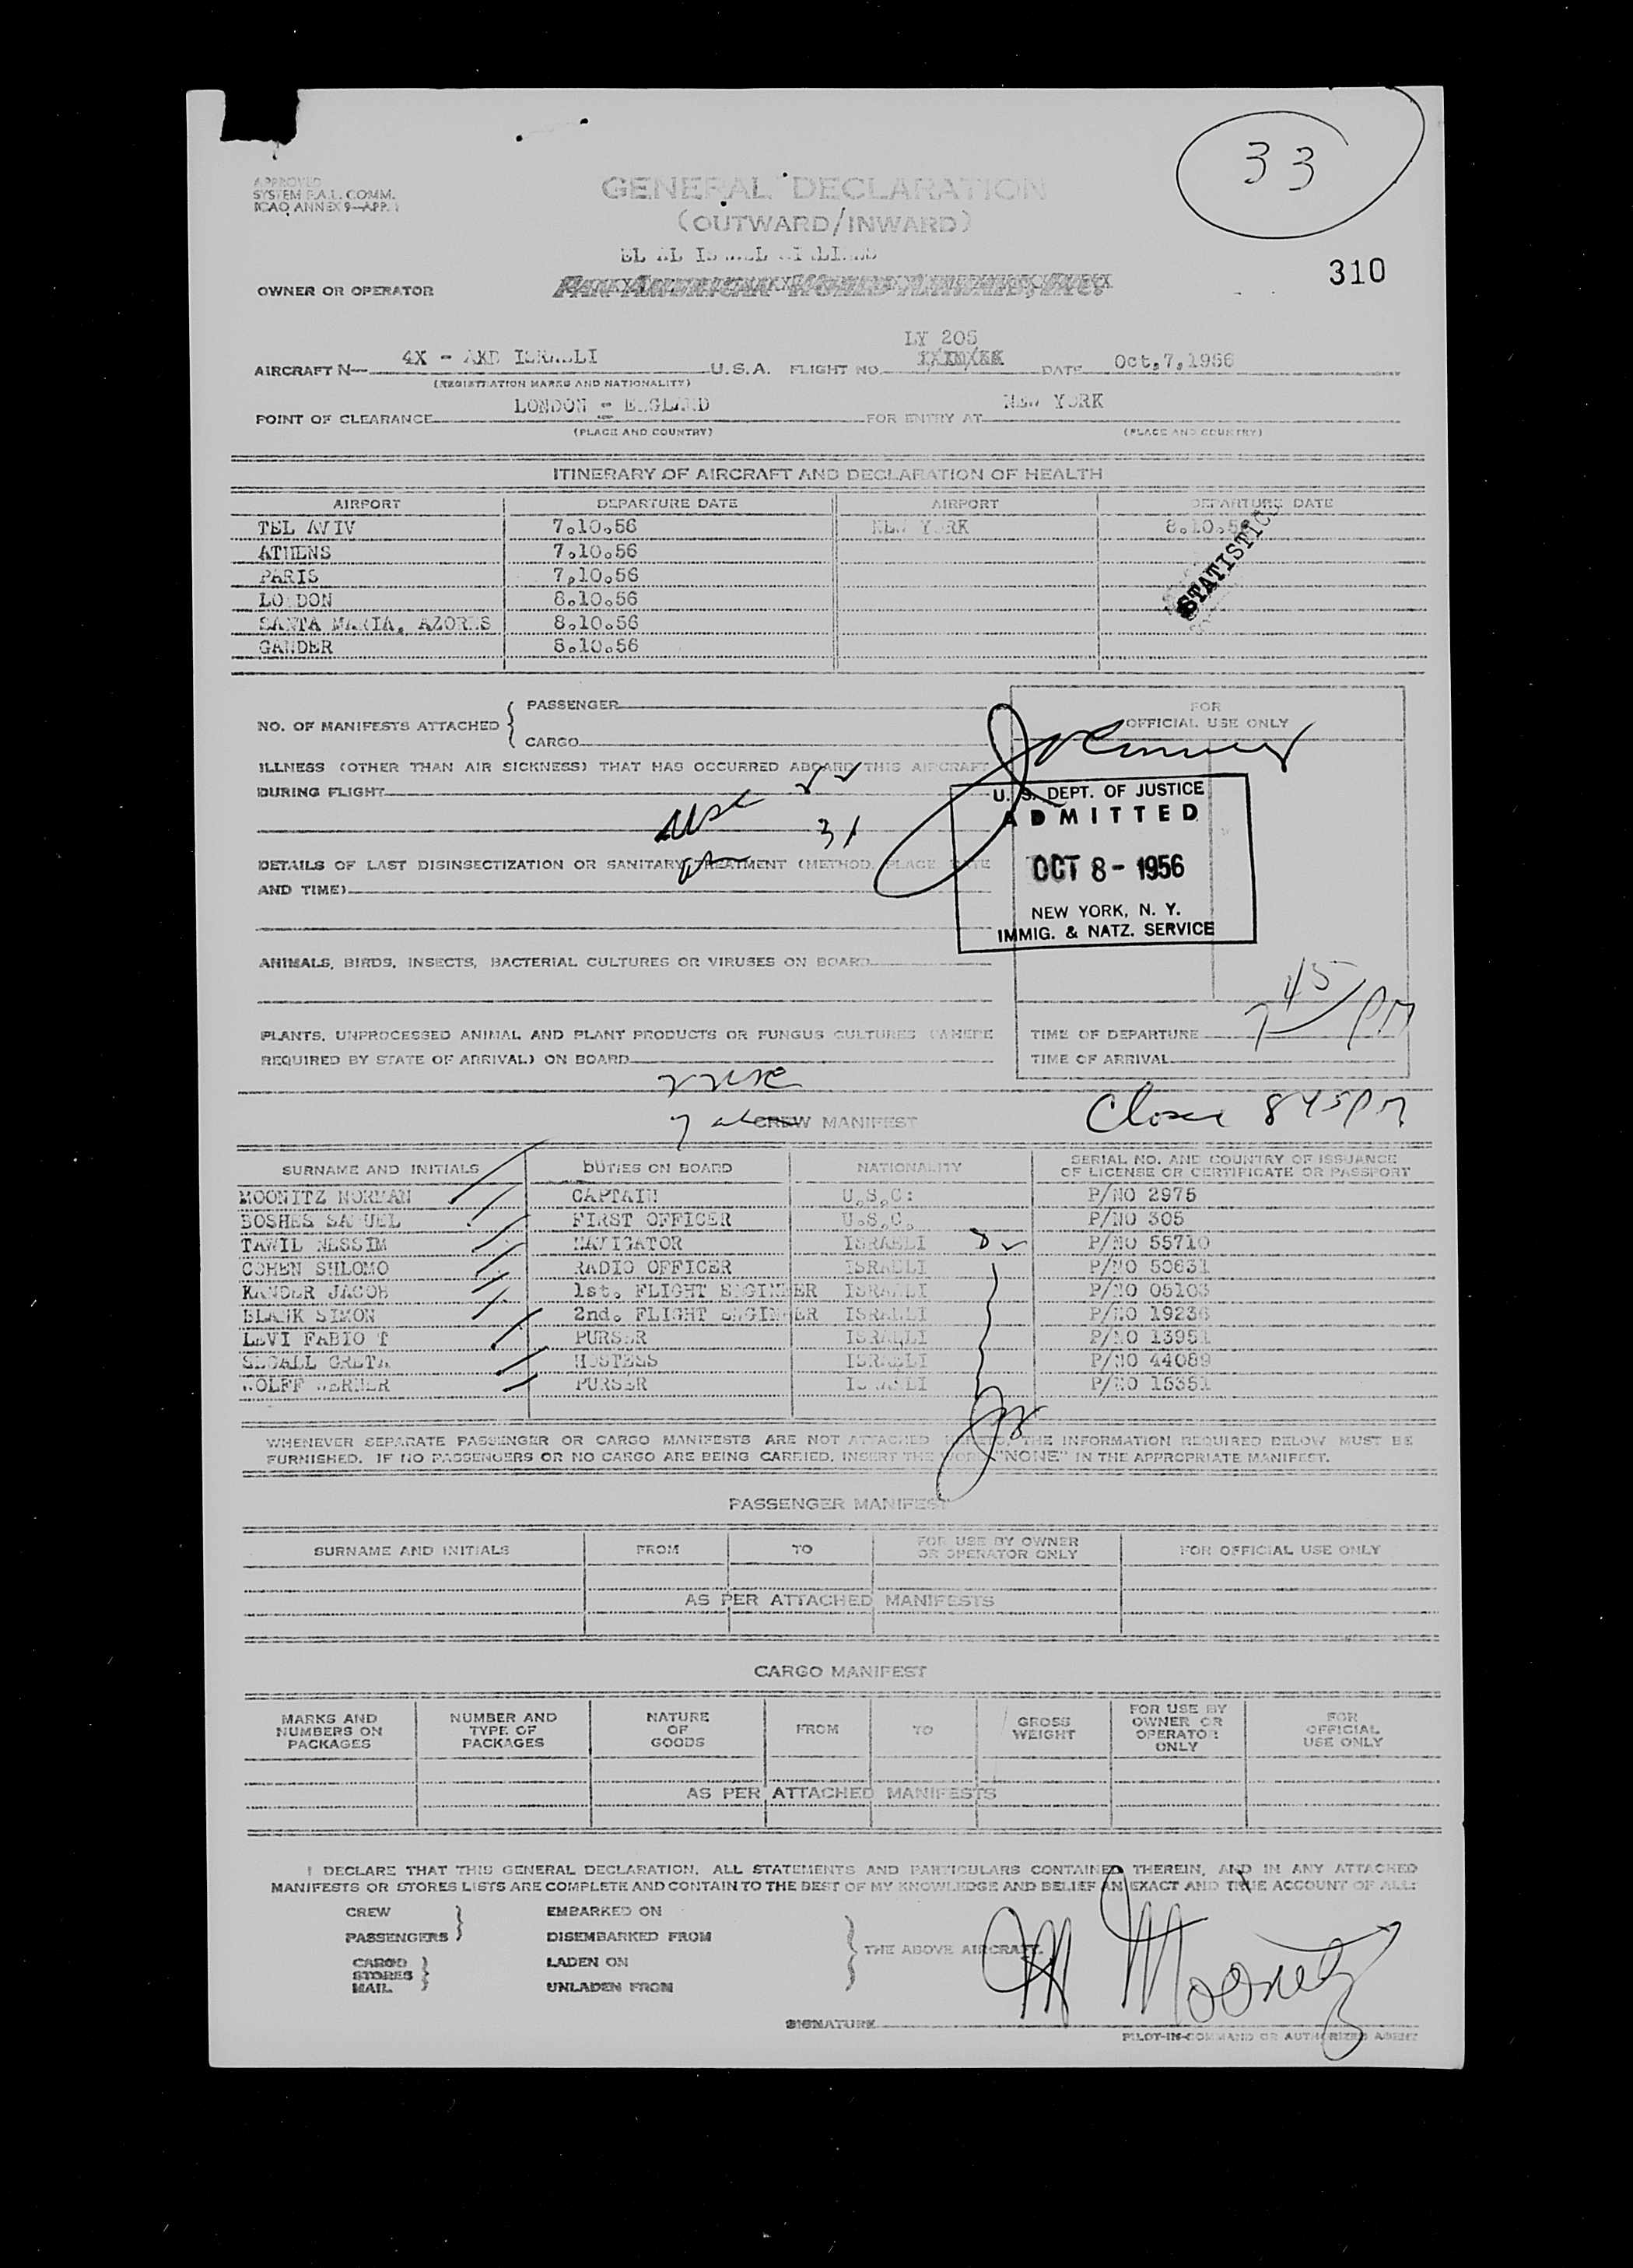 33
APPROVED
SYSTEM F.A.L. COMM.
ICAO ANNEX 9—APP. 1
GENERAL DECLARATION
(OUTWARD/INWARD)
310
EL AL
OWNER OR OPERATOR PAN AMERICAN WORLD AIRWAYS, INC.
LY 205
AIRCRAFT N— 4X - ISRAELI U.S.A. FLIGHT NO. DATE Oct,7,1956
(REGISTRATION MARKS AND NATIONALITY)
POINT OF CLEARANCE LONDON - ENGLAND FOR ENTRY AT NEW YORK
(PLACE AND COUNTRY) (PLACE AND COUNTRY)
ITINERARY OF AIRCRAFT AND DECLARATION OF HEALTH
AIRPORT DEPARTURE DATE AIRPORT DEPARTURE DATE
TEL AVIV 7.10.56 NEW YORK 8.10.56
ATHENS 7.10.56
PARIS 7,10.56
LONDON 8.10.56
SANTA MARIA, AZORES 8.10.56
GANDER 8.10.56
NO. OF MANIFESTS ATTACHED { PASSENGER
CARGO
FOR
OFFICIAL USE ONLY
ILLNESS (OTHER THAN AIR SICKNESS) THAT HAS OCCURRED ABOARD THIS AIRCRAFT
DURING FLIGHT
31
U. S. DEPT. OF JUSTICE
ADMITTED
OCT 8 - 1956
NEW YORK, N. Y.
IMMIG. & NATZ. SERVICE
DETAILS OF LAST DISINSECTIZATION OR SANITARY TREATMENT (METHOD, PLACE, DATE
AND TIME)
ANIMALS, BIRDS, INSECTS, BACTERIAL CULTURES OR VIRUSES ON BOARD
PLANTS, UNPROCESSED ANIMAL AND PLANT PRODUCTS OR FUNGUS CULTURES (WHERE
REQUIRED BY STATE OF ARRIVAL) ON BOARD
TIME OF DEPARTURE 7 45 PM
TIME OF ARRIVAL
Close 845PM
CREW MANIFEST
SURNAME AND INITIALS DUTIES ON BOARD NATIONALITY SERIAL NO. AND COUNTRY OF ISSUANCE
OF LICENSE OR CERTIFICATE OR PASSPORT
MOONITZ NORMAN CAPTAIN U.S.C: P/NO 2975
BOSHES SAMUEL FIRST OFFICER U.S.C. P/NO 305
TAWIL NESSIM NAVIGATOR ISRAELI P/NO 55710
COHEN SHLOMO RADIO OFFICER ISRAELI P/NO 50631
KANDER JACOB 1st. FLIGHT ENGINEER ISRAELI P/NO 05103
BLANK SIMON 2nd. FLIGHT ENGINEER ISRAELI P/NO 19236
LEVI FABIO T PURSER ISRAELI P/NO 13951
SEGALL GRETA HOSTESS ISRAELI P/NO 44089
WOLFF WERNER PURSER ISRAELI P/NO 15351
WHENEVER SEPARATE PASSENGER OR CARGO MANIFESTS ARE NOT ATTACHED HERETO, THE INFORMATION REQUIRED BELOW MUST BE
FURNISHED. IF NO PASSENGERS OR NO CARGO ARE BEING CARRIED, INSERT THE WORD "NONE" IN THE APPROPRIATE MANIFEST.
PASSENGER MANIFEST
SURNAME AND INITIALS FROM TO FOR USE BY OWNER
OR OPERATOR ONLY FOR OFFICIAL USE ONLY
AS PER ATTACHED MANIFESTS
CARGO MANIFEST
MARKS AND
NUMBERS ON
PACKAGES
NUMBER AND
TYPE OF
PACKAGES
NATURE
OF
GOODS
FROM
TO
GROSS
WEIGHT
FOR USE BY
OWNER OR
OPERATOR
ONLY
FOR
OFFICIAL
USE ONLY
AS PER ATTACHED MANIFESTS
I DECLARE THAT THIS GENERAL DECLARATION, ALL STATEMENTS AND PARTICULARS CONTAINED THEREIN, AND IN ANY ATTACHED
MANIFESTS OR STORES LISTS ARE COMPLETE AND CONTAIN TO THE BEST OF MY KNOWLEDGE AND BELIEF AN EXACT AND TRUE ACCOUNT OF ALL:
CREW
PASSENGERS
CARGO
STORES
MAIL
EMBARKED ON
DISEMBARKED FROM
LADEN ON
UNLADEN FROM
THE ABOVE AIRCRAFT.
SIGNATURE
PILOT-IN-COMMAND OR AUTHORIZED AGENT